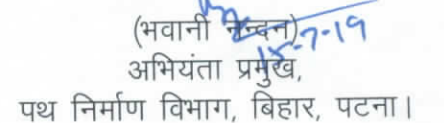 (भवानी नन्दन)
15-7-19
अभियंता प्रमुख,
पथ निर्माण विभाग, बिहार, पटना।